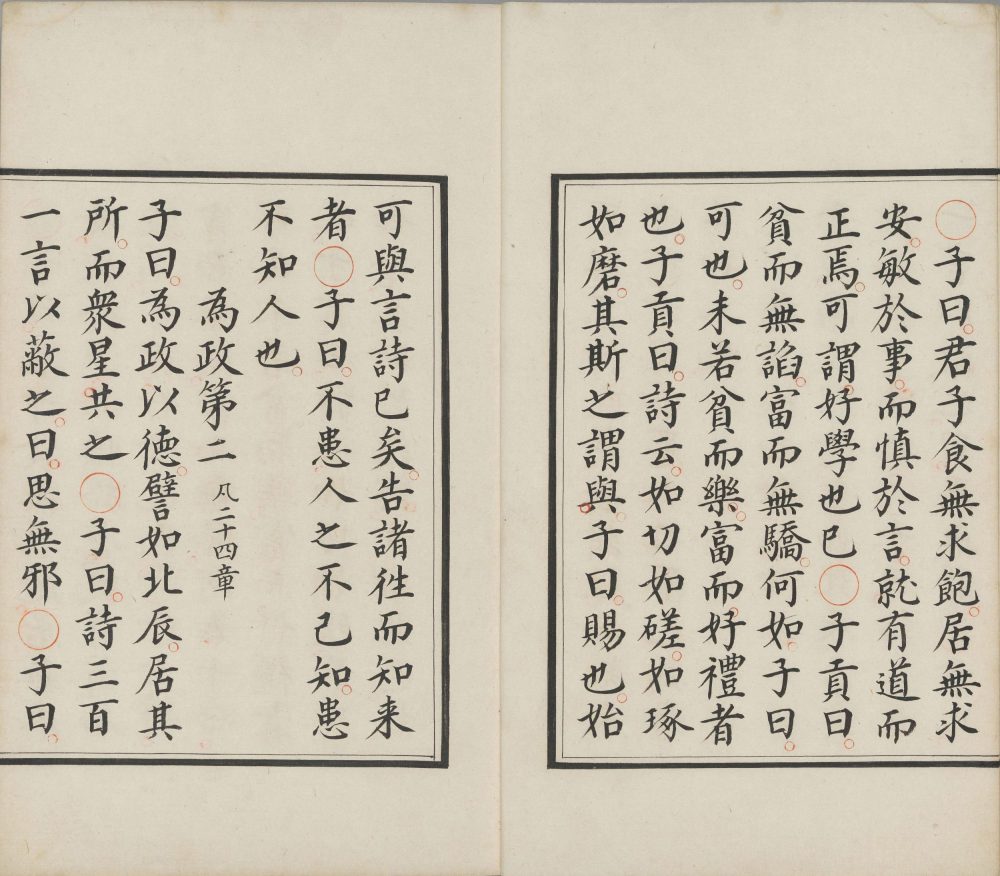 ○子曰君子食無求飽居無求
安敏於事而慎於言就有道而
正焉可謂好學也已○子貢曰
貧而無諂富而無驕何如子曰
可也未若貧而樂富而好禮者
也子貢曰詩云如切如磋如琢
如磨其斯之謂與子曰賜也始
可與言詩已矣告諸徃而知来
者○子曰不患人之不己知患
不知人也
為政第二 凡二十四章
子曰為政以德譬如北辰居其
所而衆星共之○子曰詩三百
一言以蔽之曰思無邪○子曰